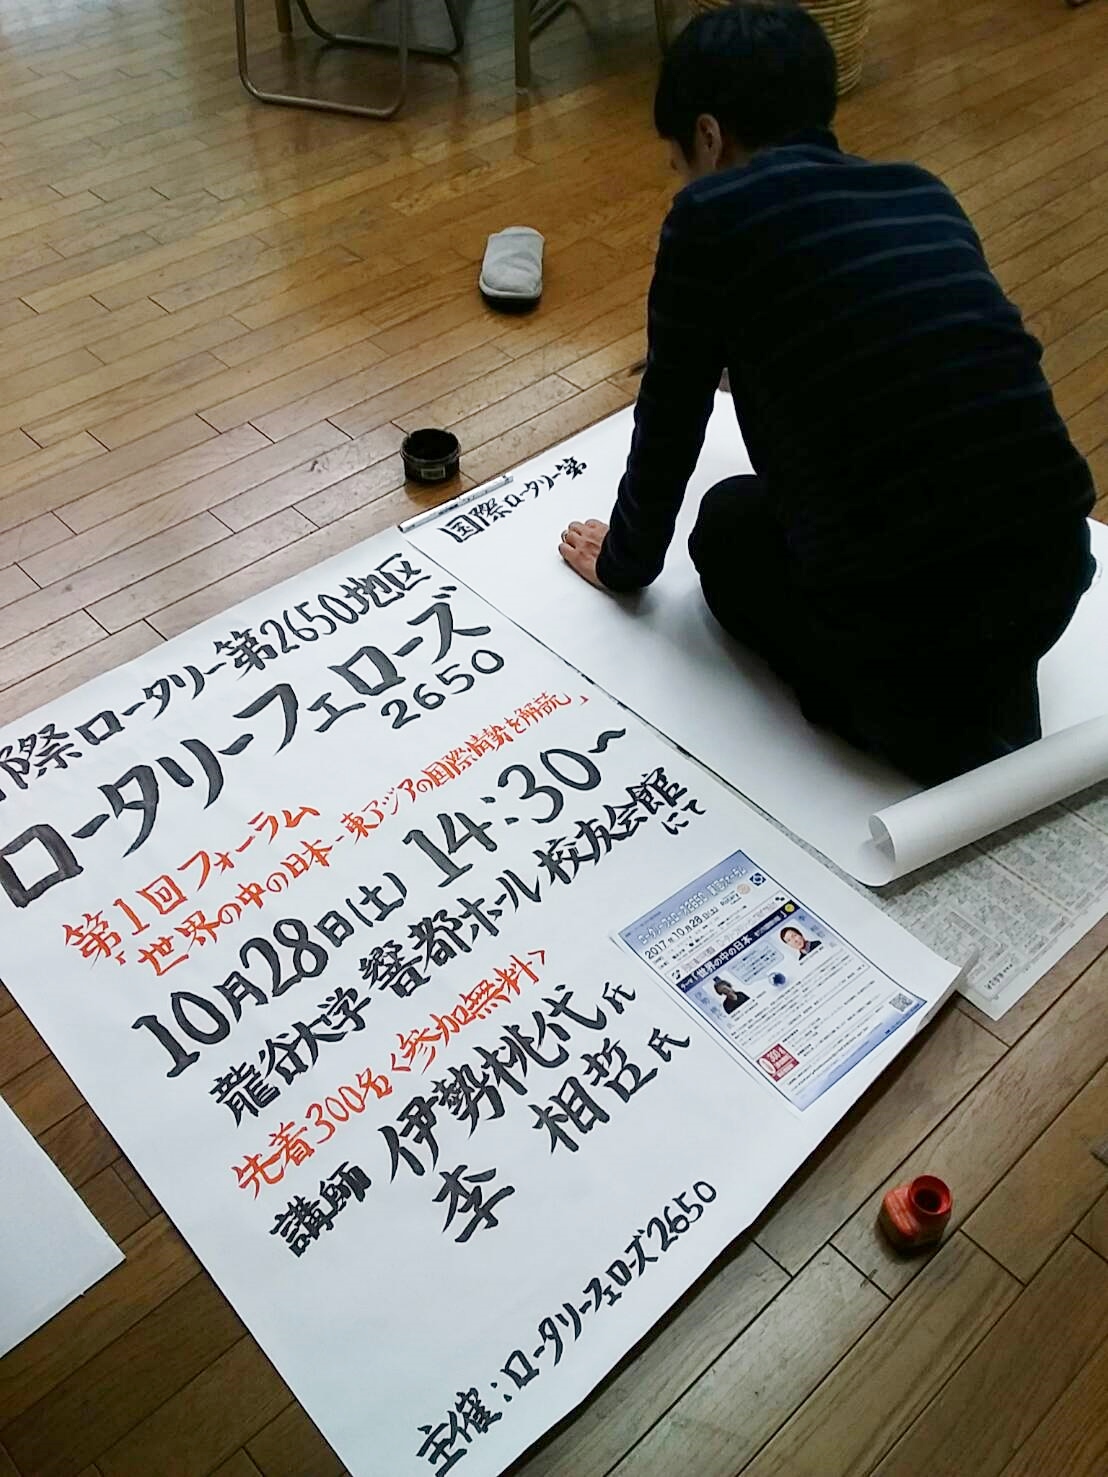 国際ロータリー第
国際ロータリー第2650地区
ロータリーフェローズ
2650
第1回フォーラム
「世界の中の日本-東アジアの国際情勢を解読」
10月28日(土) 14:30~
龍谷大学 響都ホール 校友会館にて
先着300名<参加無料>
講師 伊勢桃代氏
李 相哲氏
主催:ロータリーフェローズ2650
2017年10月28日(土)
世界の中の日本